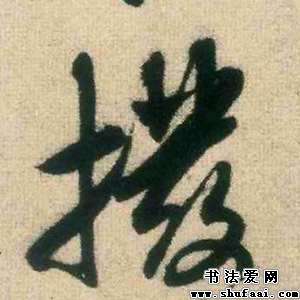 撥
书法爱网
www.shufaai.com